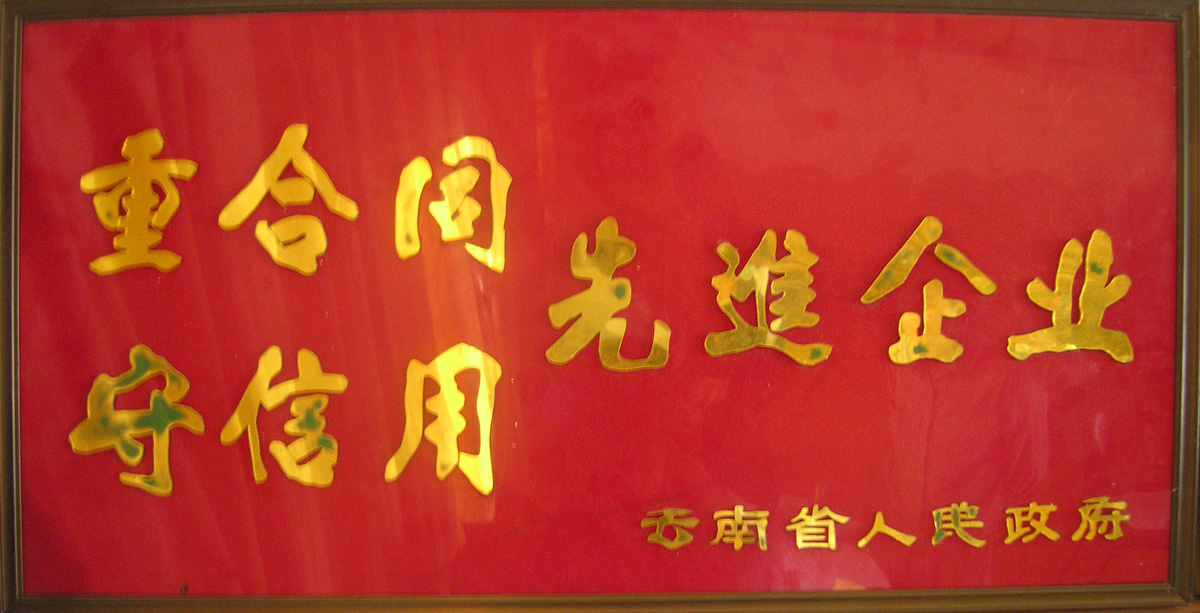 重合同
守信用
先進企业
云南省人民政府